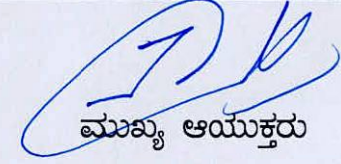 ಮುಖ್ಯ ಆಯುಕ್ತರು